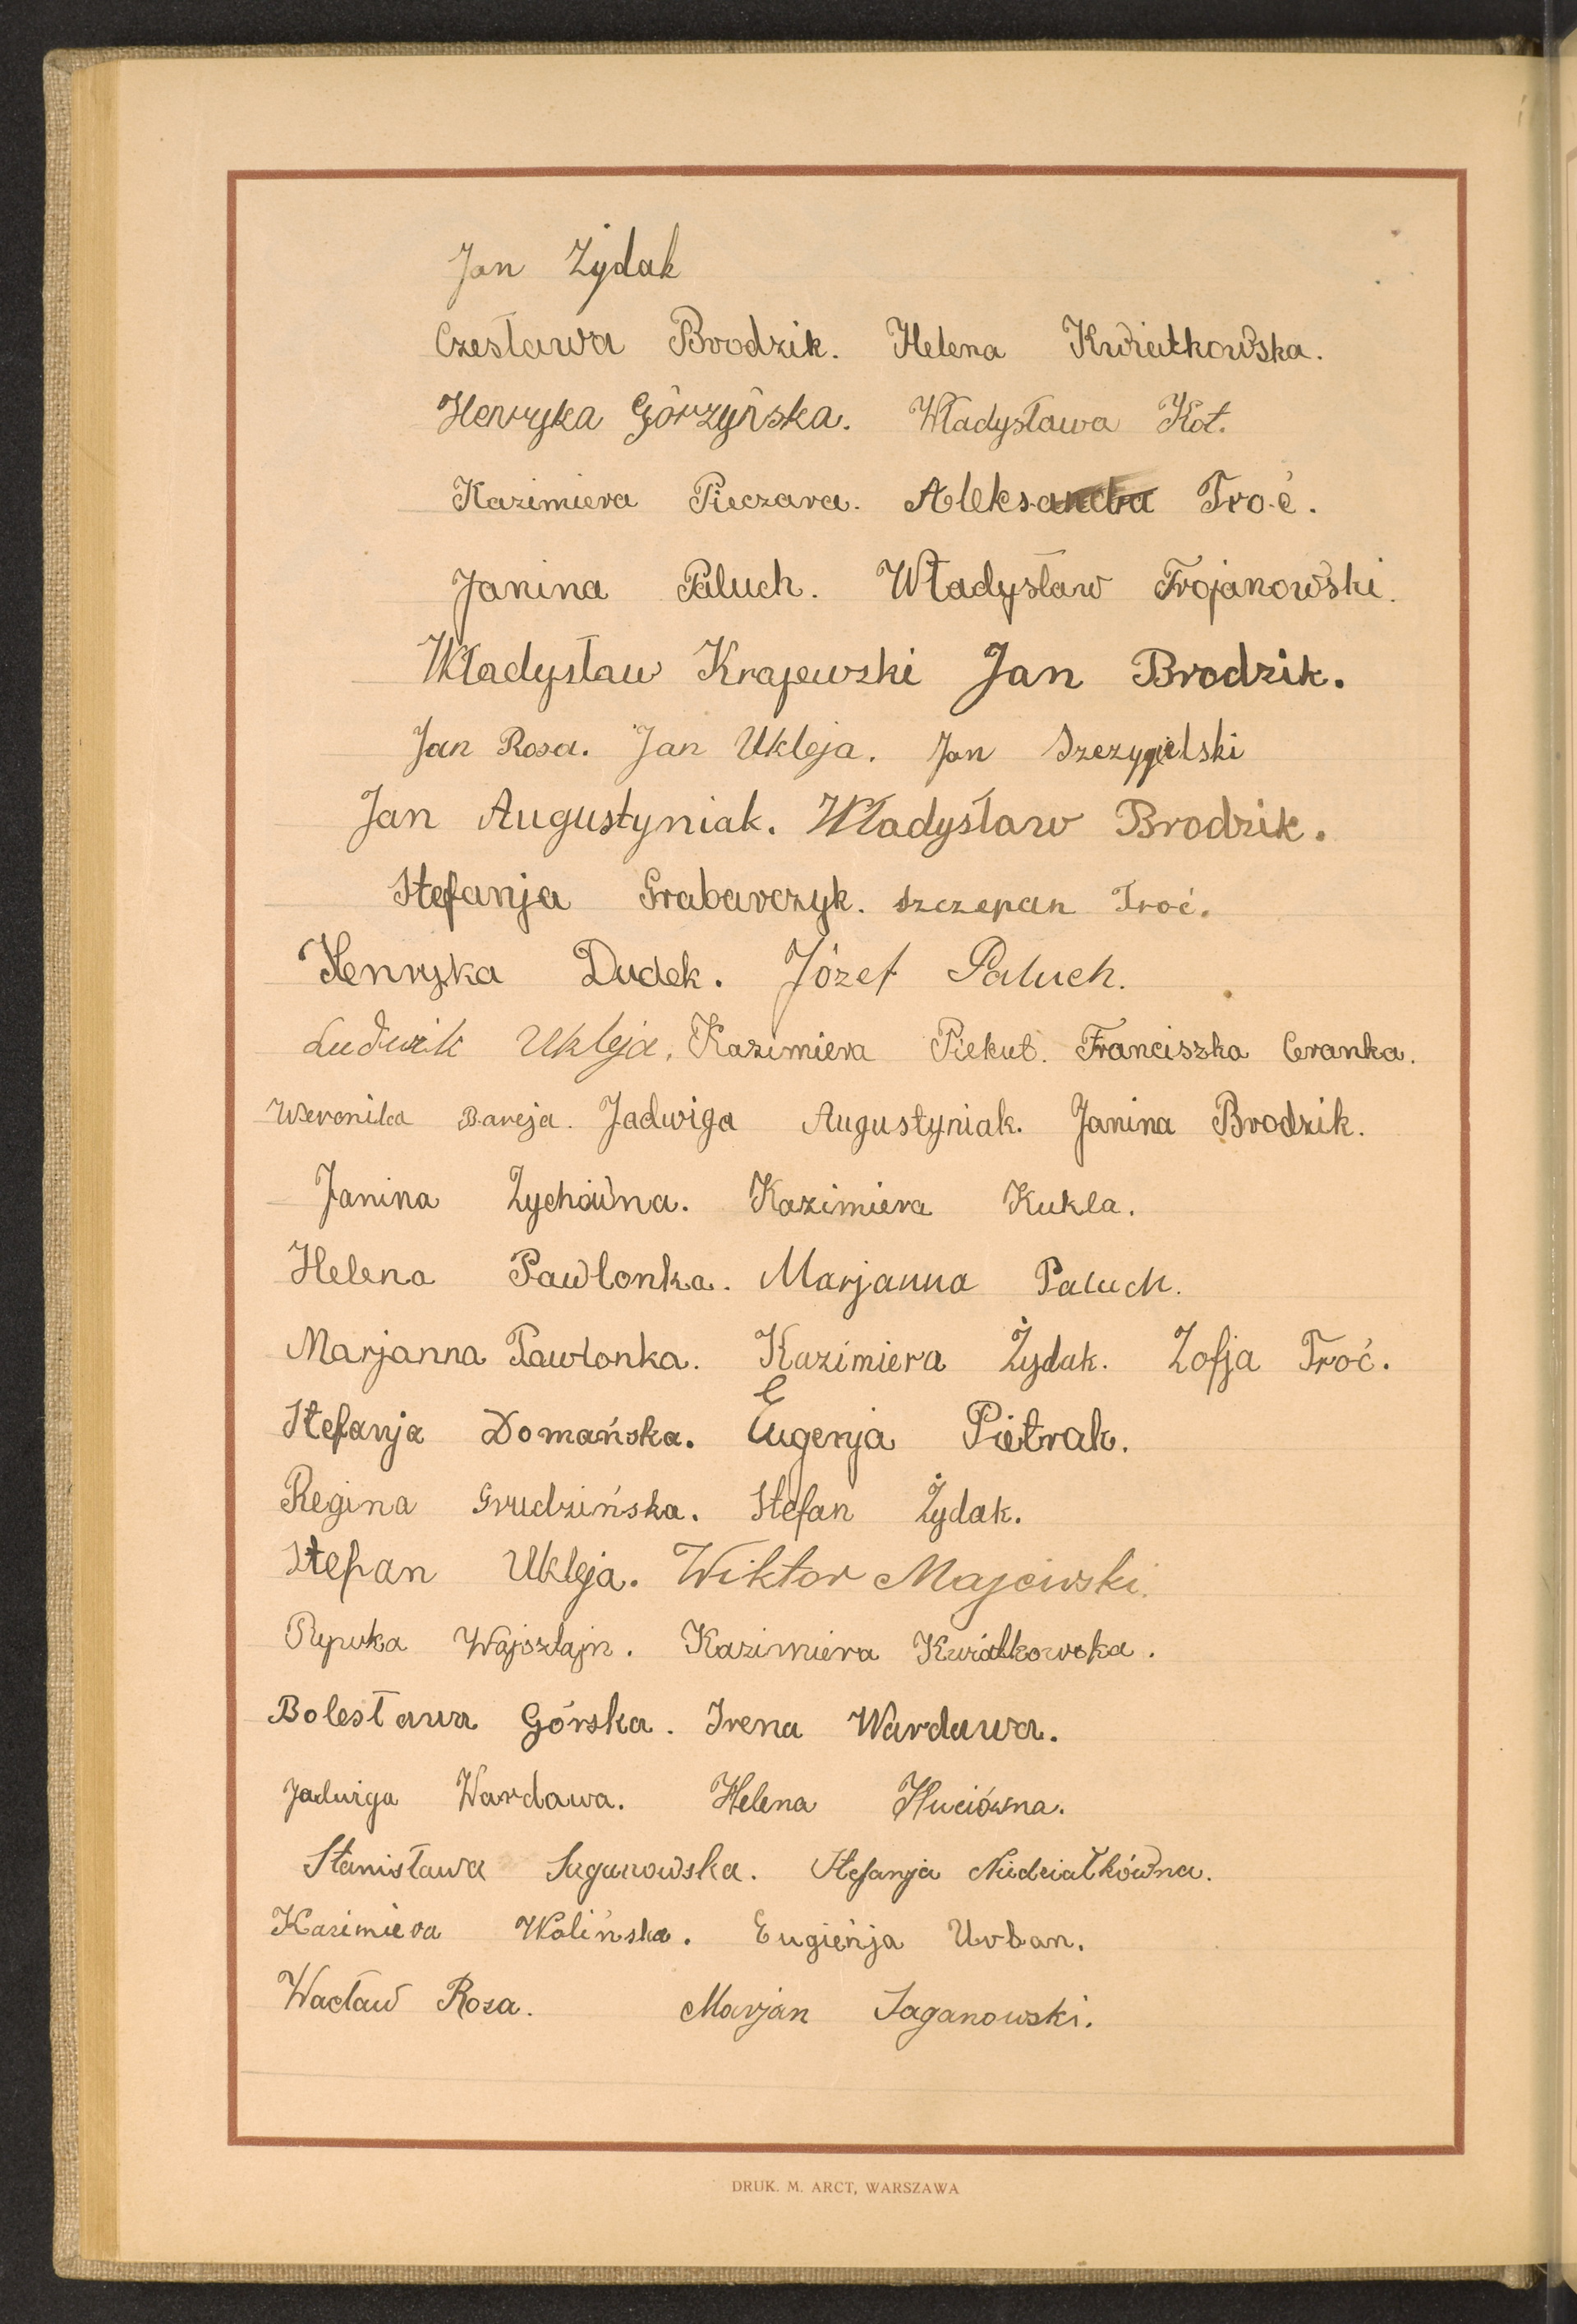 Jan Żydak
Czesława Brodzik. Helena Kwiatkowska.
Henryka Górzyńska. Władysława Kot.
Kazimiera Pieczara. Aleksandra Troć.
Janina Paluch. Władysław Trojanowski.
Władysław Krajewski Jan Brodzik.
Jan Rosa. Jan Ukleja. Jan Szczygielski
Jan Augustyniak. Władysław Brodzik.
Stefanja Grabarczyk. Szczepan Troć.
Henryka Dudek. Józef Paluch.
Ludwik Ukleja. Kazimiera Piekut. Franciszka Ceranka.
Weronika Bareja. Jadwiga Augustyniak. Janina Brodzik.
Janina Zychówna. Kazimiera Kukla.
Helena Pawlonka. Marjanna Paluch.
Marjanna Pawlonka. Kazimiera Żydak. Zofja Troć.
Stefanja Domańska. Eugenja Pietrak.
Regina Grudzińska. Stefan Żydak.
Stefan Ukleja. Wiktor Majewski.
Rywka Wajsztajn. Kazimiera Kwiatkowska.
Bolesława Górska. Irena Wardawa.
Jadwiga Wardawa. Helena Huciówna.
Stanisława Saganowska. Stefanja Niedziałkówna.
Kazimiera Wolińska. Eugienja Urban.
Wacław Rosa. Marjan Saganowski.
DRUK. M. ARCT, WARSZAWA